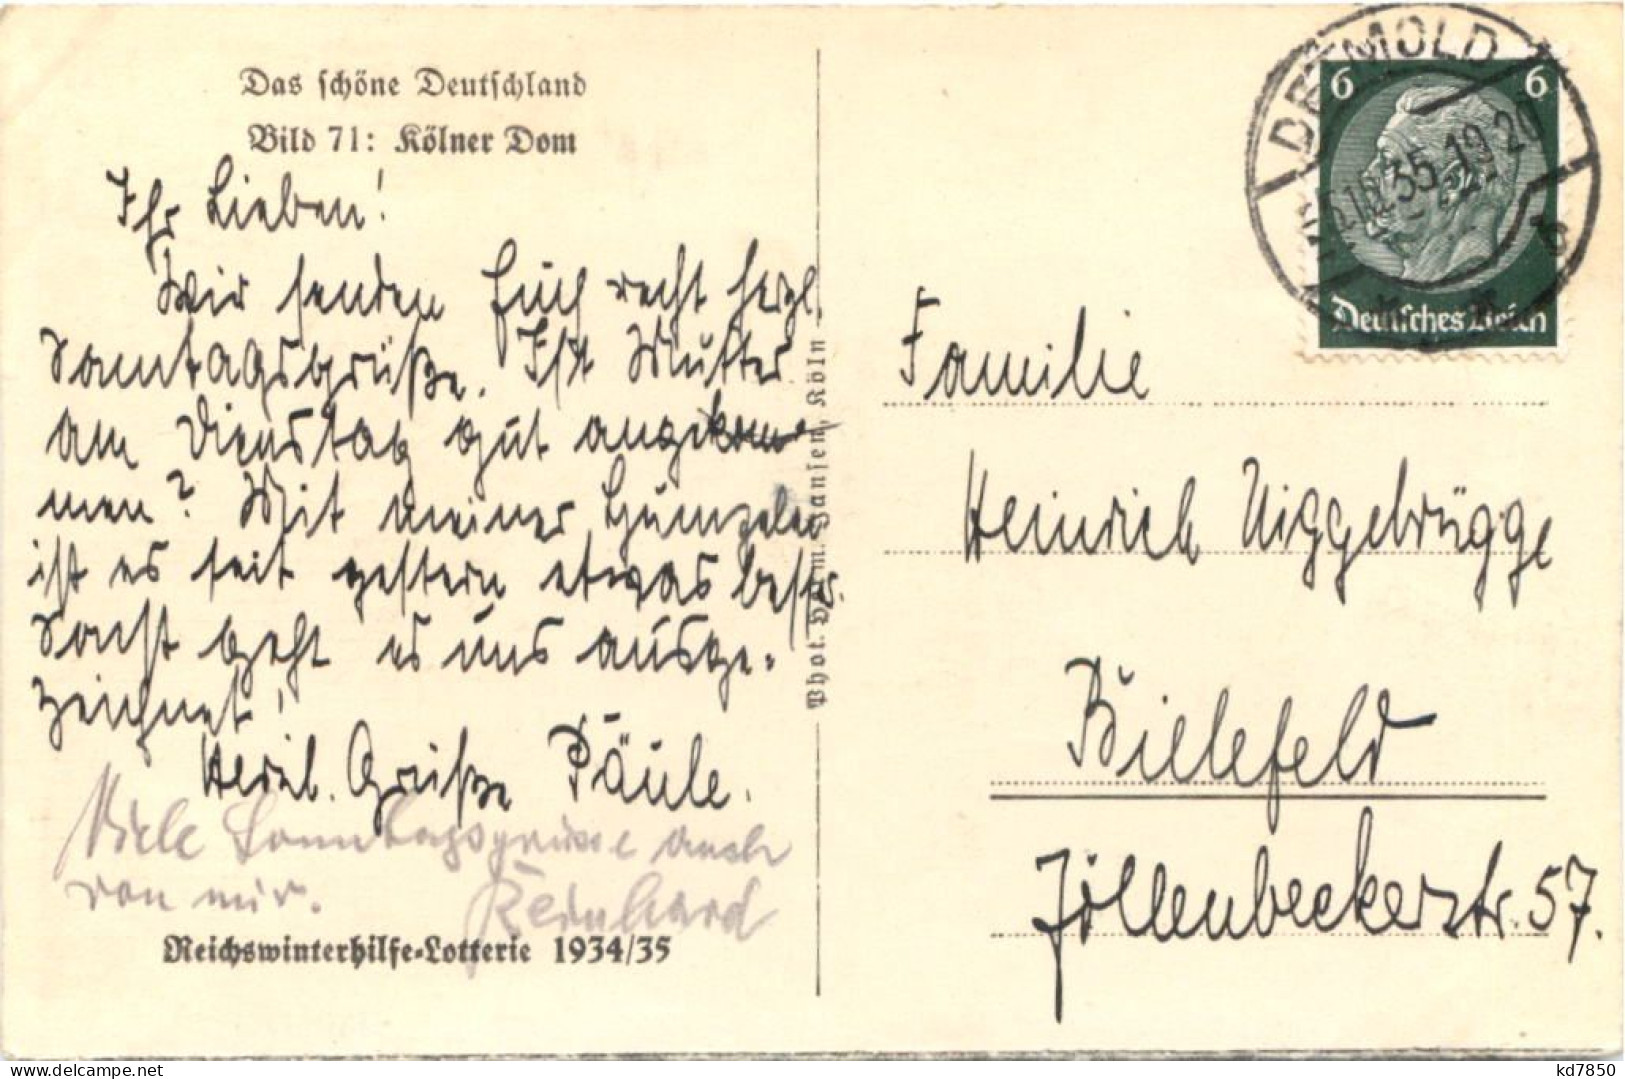 Das schöne Deutschland
Bild 71: Kölner Dom
Ihr Lieben!
Wir senden Euch recht herzl.
Sonntagsgrüße. Ist Mutter
am Dienstag gut angekom-
men? Mit meiner
ist es seit gestern etwas besser.
Sonst geht es uns ausge-
zeichnet!
Herzl. Grüße Päule.
Viele Sonntagsgrüsse auch
von mir. Reinhard
Reichswinterhilfe-Lotterie 1934/35
Phot. Herm. Jansen, Köln
DETMOLD
35.19-20
6 6
Deutsches Reich
Familie
Heinrich Niggebrügge
Bielefeld
Jöllenbeckerstr. 57.
kd7850